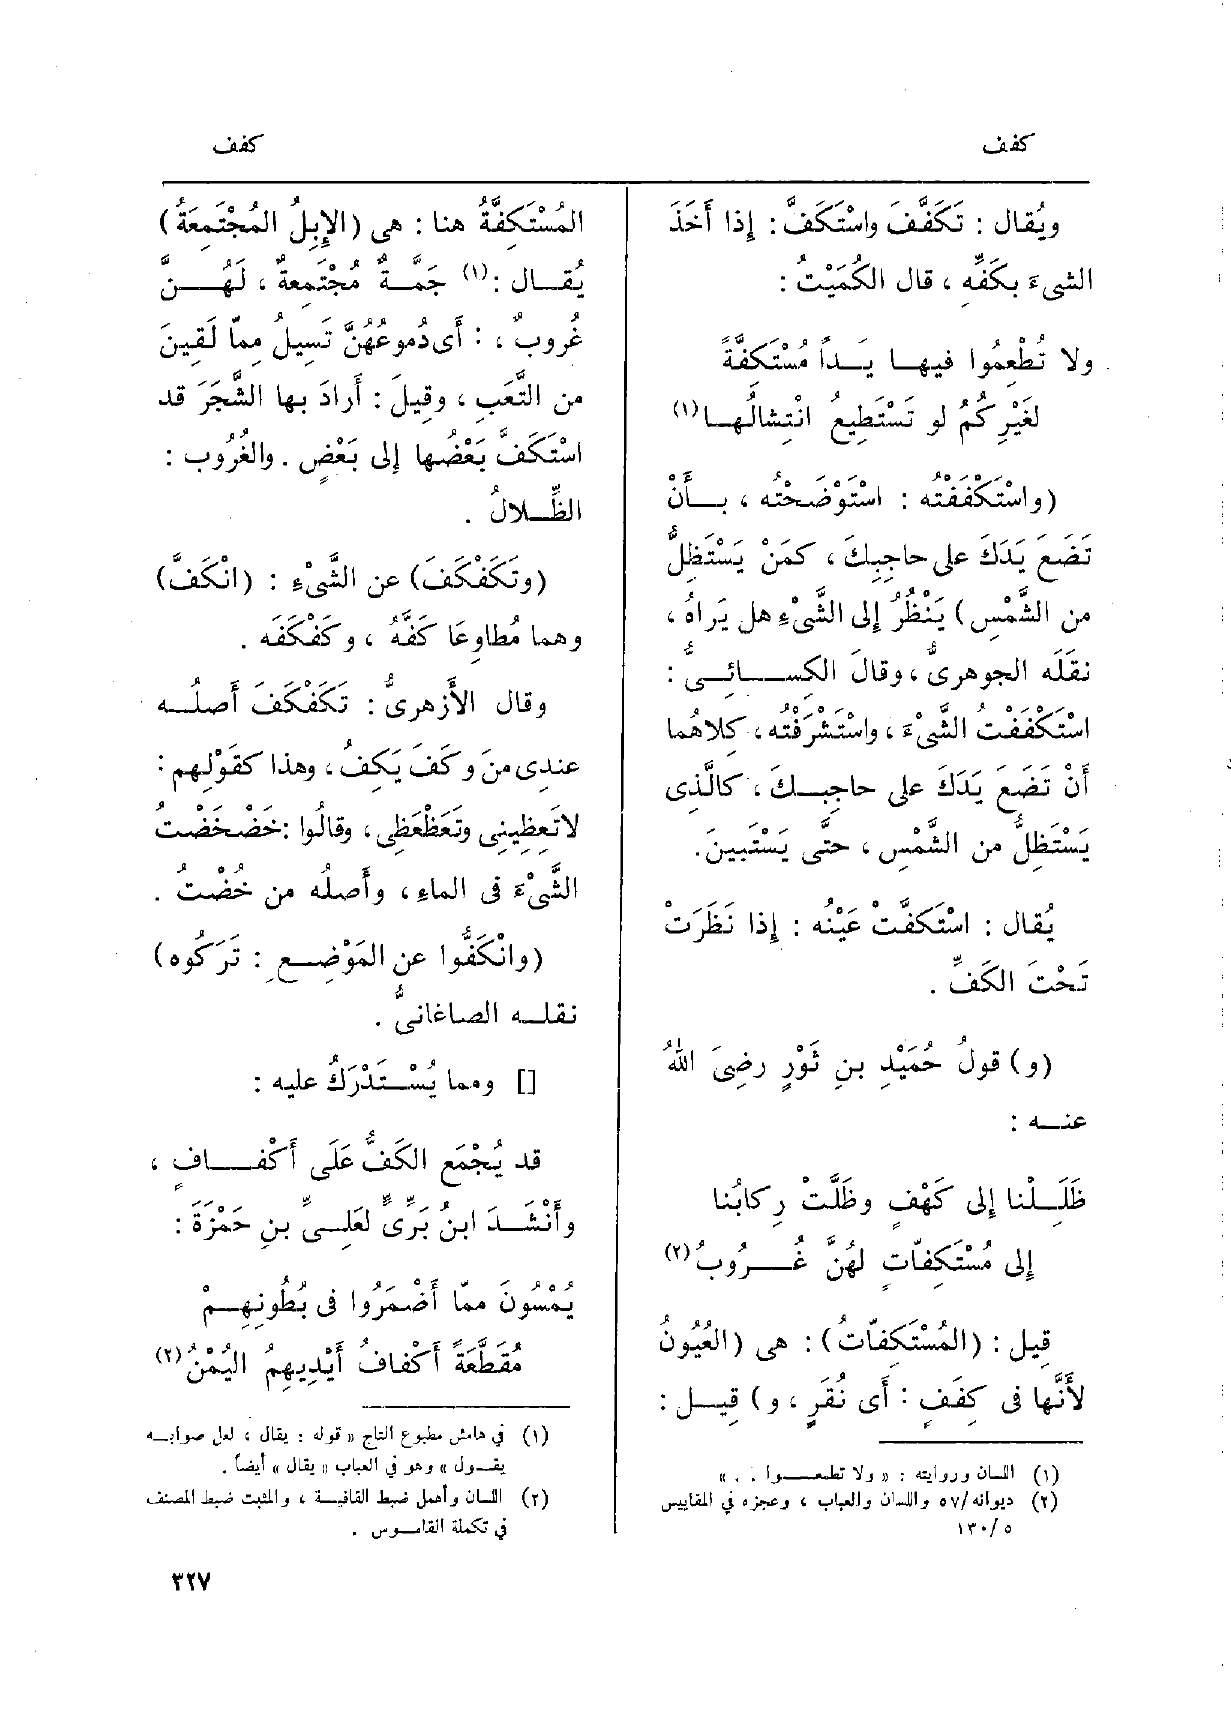 كفف
كفف
ويُقال : تَكَفَّفَ واسْتَكَفَّ : إذا أَخَذَ
الشىءَ بكَفِّه ، قال الكُمَيْتُ :
ولا تُطْعِمُوا فيهـا يَـداً مُسْتَكِفَّةً
لغَيْرِكُمُ لو تَسْتَطِيعُ انْتِشالَهـا(١)
(واسْتَكْفَفْتُه : اسْتَوْضَحْتُه ، بـأَنْ
تَضَعَ يَدَكَ على حاجِبِكَ ، كمَنْ يَسْتَظِلُّ
من الشَّمْسِ) يَنْظُرُ إلى الشَّىْءِ هل يَراهُ ،
نقَلَه الجوهرىُّ ، وقالَ الكِسـائِـىُّ :
اسْتَكْفَفْتُ الشَّىْءَ ، واسْتَشْرَفْتُه ، كلاهُما
أَنْ تَضَعَ يَدَكَ على حاجِبـكَ ، كالَّذِى
يَسْتَظِلُّ من الشَّمْسِ ، حتَّى يَسْتَبِينَ.
يُقال : اسْتَكَفَّتْ عَيْنُه : إذا نَظَرَتْ
تَحْتَ الكَفِّ .
(و) قولُ حُمَيْدِ بنِ ثَوْرٍ رضِىَ اللهُ
عنـه :
ظَلَـلْنا إلى كَهْفٍ وظَلَّتْ رِكابُنا
إلى مُسْتَكِفّاتٍ لهُنَّ غُـرُوبُ(٢)
قيل : (المُسْتَكِفّاتُ) : هى (العُيُونُ
لأَنَّها فى كِفَفٍ : أى نُقَرٍ ، و) قِيـل :
(١) اللسان وروايته : « ولا تطمعـوا . . »
(٢) ديوانه/٥٧ واللسان والعباب ، وعجزه في المقاييس
٥/ ١٣٠
المُسْتَكِفَّةُ هنا : هى (الإِبِلُ المُجْتَمِعَةُ)
يُقـال :(١) جَمَّـةٌ مُجْتَمِعةٌ ، لَهُـنَّ
غُروبٌ ، : أى دُموعُهُنَّ تَسِيلُ مِمّا لَقِينَ
من التَّعَبِ ، وقيلَ : أرادَ بها الشَّجَرَ قد
اسْتَكَفَّ بَعْضُها إلى بَعْضٍ . والغُرُوب :
الظِّـلالُ .
(وتَكَفْكَفَ) عن الشَّىْءِ : (انْكَفَّ)
وهما مُطاوِعَا كَفَّهُ ، وكَفْكَفَه .
وقال الأَزهرىُّ : تَكَفْكَفَ أَصلُـه
عِندى من وكَفَ يَكِفُ ، وهذا كقَوْلِهم :
لاتَعِظِينِى وتَعَظْعَظِى ، وقالُوا : خَضْخَضْتُ
الشَّىْءَ فى الماءِ ، وأَصلُه من خُضْتُ .
(وانْكَفُّوا عن المَوْضِـعِ : تَرَكُوه)
نقلـه الصاغانىُّ .
[] ومما يُسْـتَدْرَكُ عليه :
قد يُجْمَع الكَفُّ عَلَى أَكْفـافٍ ،
وأَنْشَـدَ ابنُ بَرِّىٍّ لعَلِـىِّ بنِ حَمْزَةَ :
يُمْسُونَ ممّا أَضْمَرُوا فى بُطُونِهِـمْ
مُقَطَّعَةً أَكْفافُ أَيْدِيهِمُ اليُمْنُ(٢)
(١) في هامش مطبوع التاج « قوله : يقال ، لعل صوابـه
يقـول » وهو في العباب « يقال » أيضاً .
(٢) اللسان وأهمل ضبط القافيـة ، والمثبت ضبط المصنف
في تكملة القامـوس .
٣٢٧